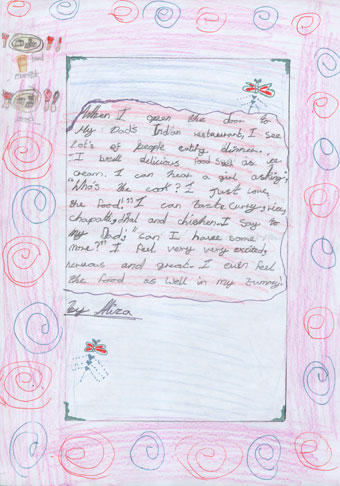 When I open the door to
My Dad's Indian restaurant, I see
Lot's of people eating dinner.
I smell delicious food such as ice
cream. I can hear a girl asking,
"Who's the cook? I just love
the food!" I can taste curry, rice,
chapatti, dhal and chicken. I say to
my Dad, "can I have some
more?" I feel very very excited,
nervous and great. I even feel
the food as well in my tummy!
by Aliza